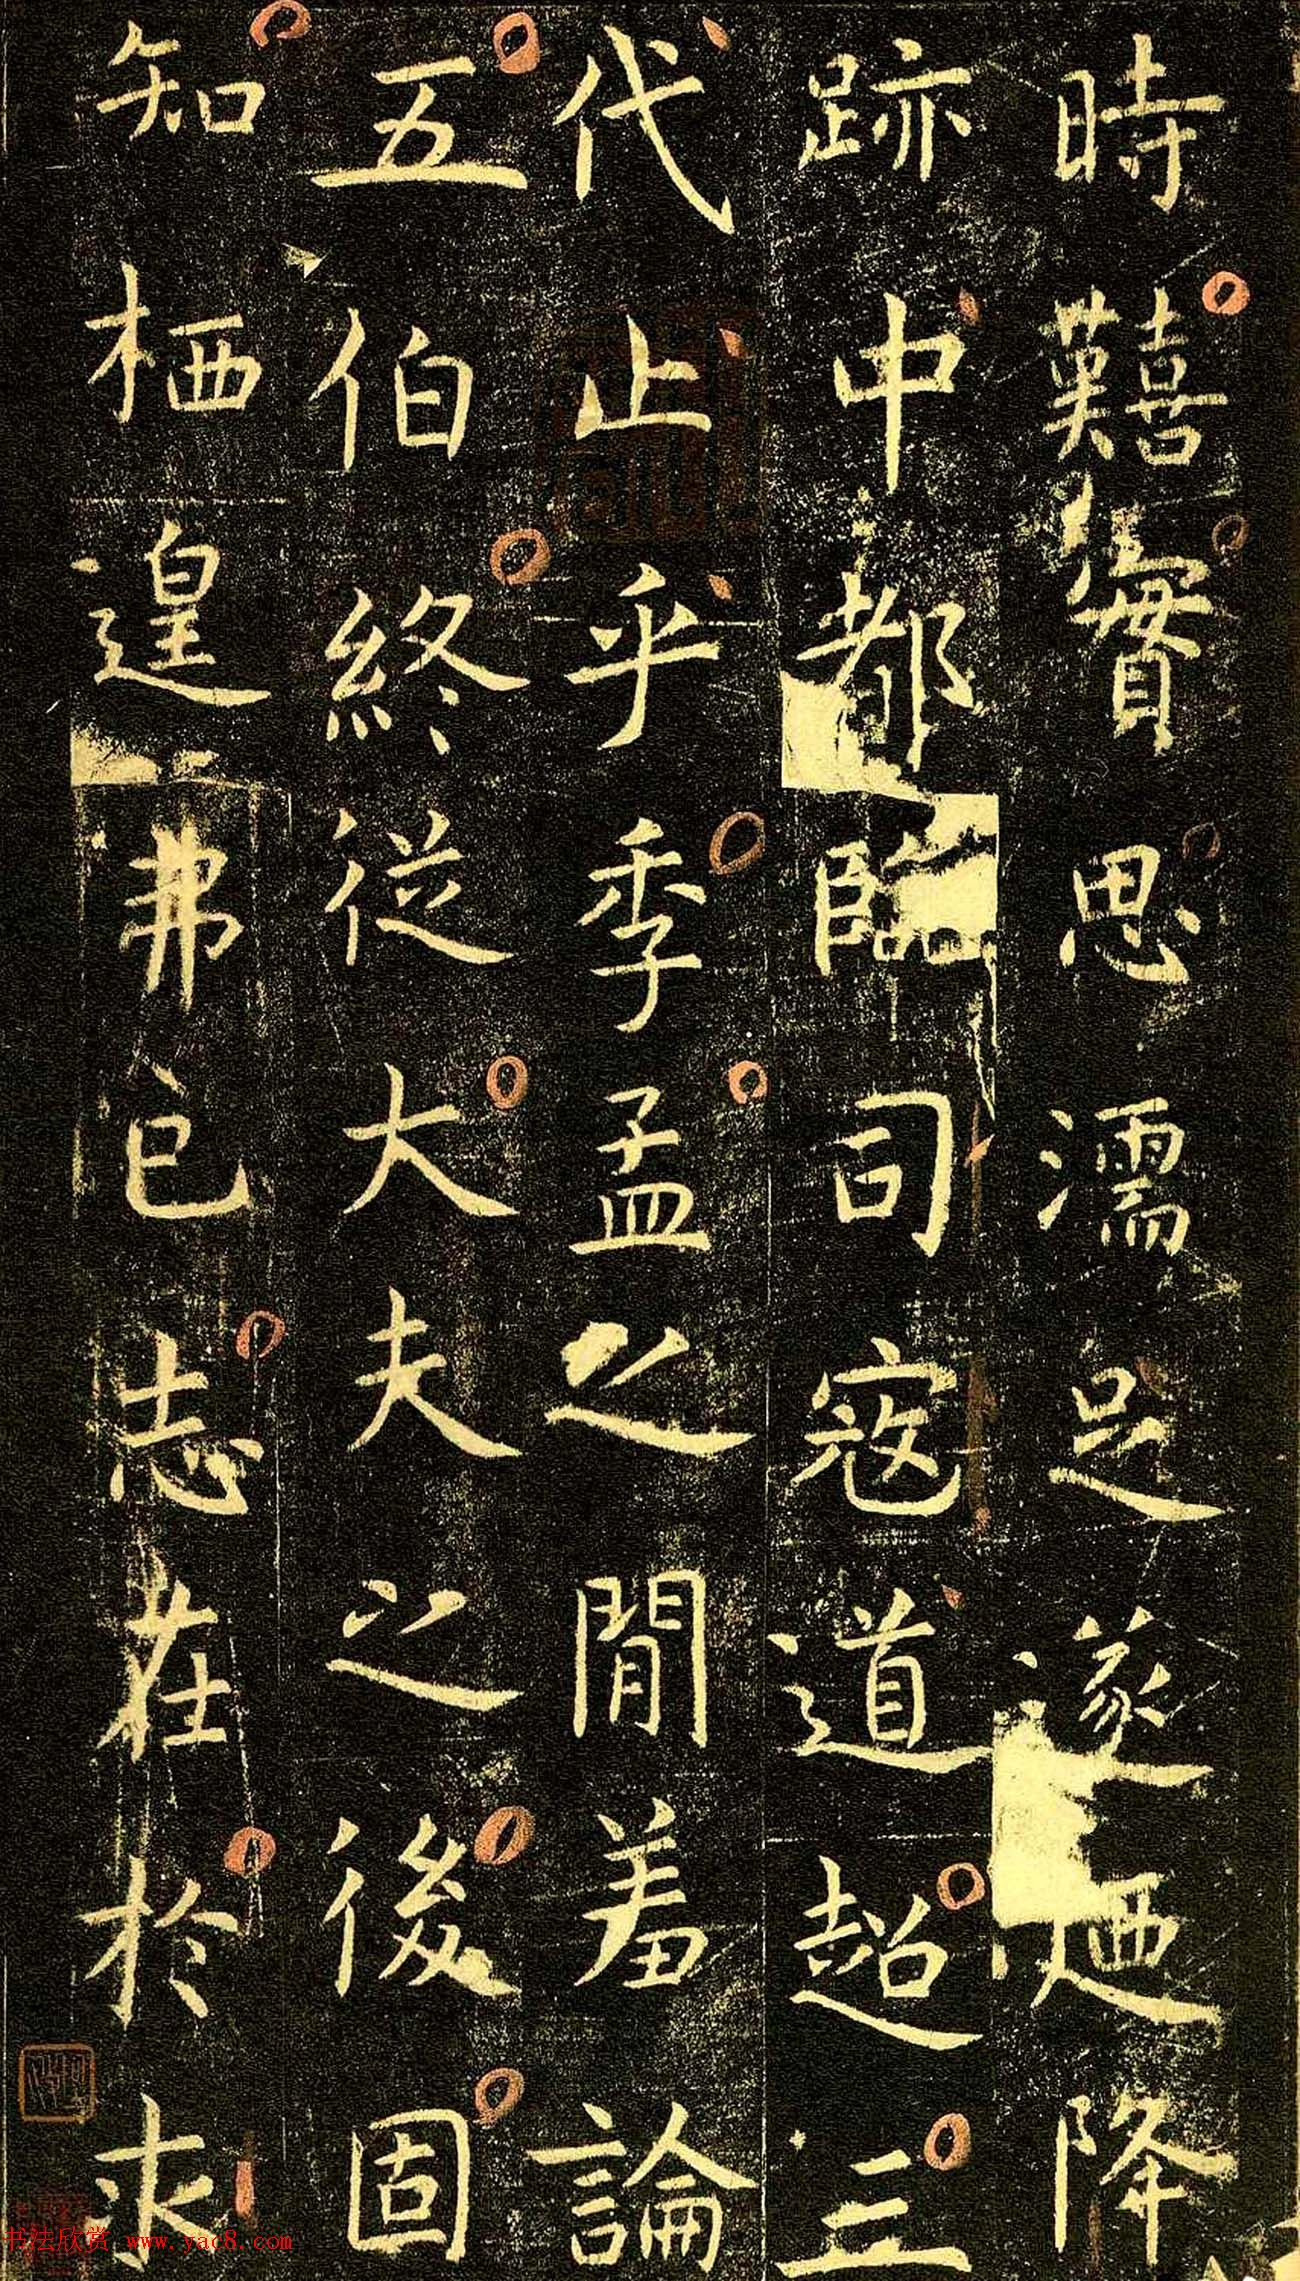 時囏實思濡足遂迺降
跡中都臨司寇道超三
代止乎季孟之閒羞論
五伯終從大夫之後固
知栖遑弗已志在於求
书法欣赏 www.yac8.com